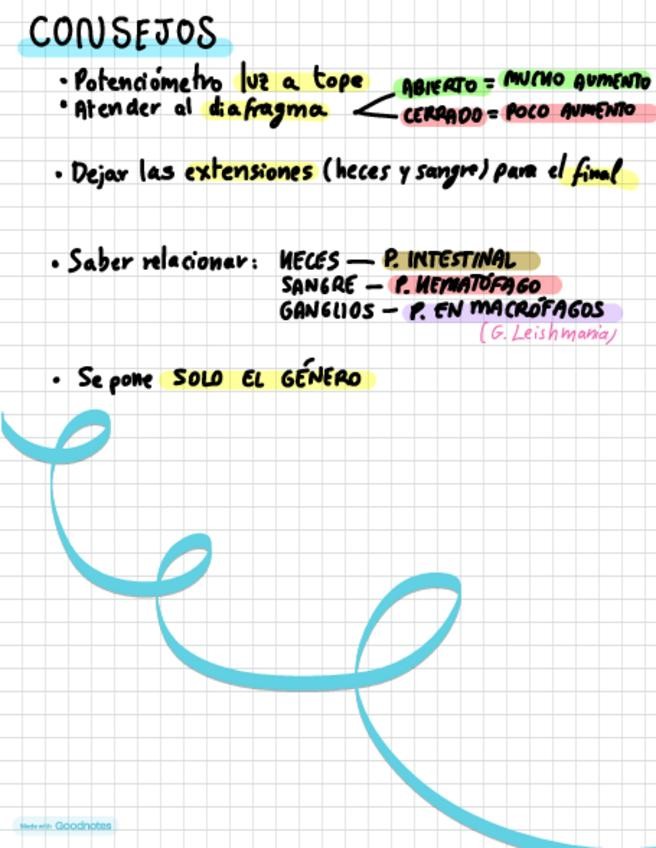 CONSEJOS
· Potenciómetro luz a tope
· Atender al diafragma < ABIERTO = MUCHO AUMENTO
CERRADO = POCO AUMENTO
· Dejar las extensiones (heces y sangre) para el final
· Saber relacionar: HECES — P. INTESTINAL
SANGRE — P. HEMATÓFAGO
GANGLIOS — P. EN MACRÓFAGOS
(G. Leishmania)
· Se pone SOLO EL GÉNERO
Made with Goodnotes